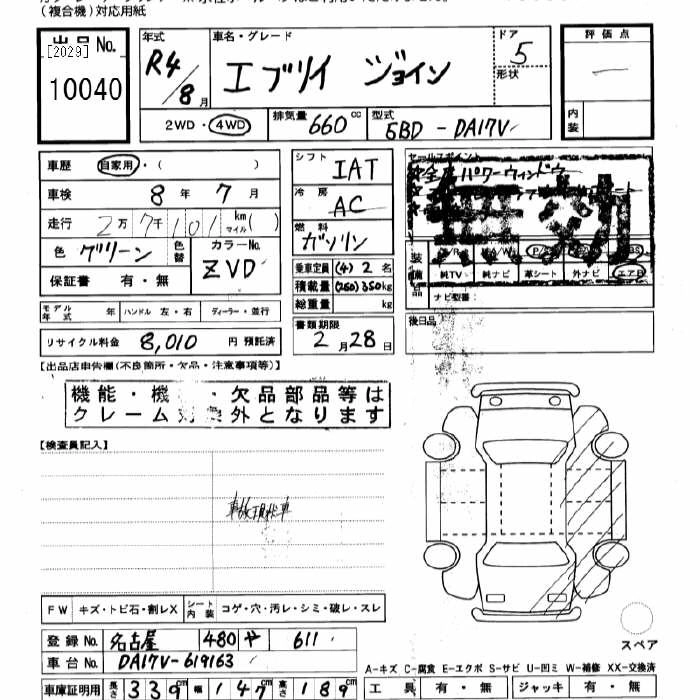 (複合機)対応用紙
出品No.
[2029]
10040
年式
R4/8月
車名・グレード
エブリイ ジョイン
ドア
5
形状
評価点
内装
2WD・4WD
排気量 660 cc
型式 5BD-DA17V
車歴 自家用・( )
車検 8年7月
走行 2万7千101 km マイル( )
色 グリーン 色替
カラーNo. ZVD
保証書 有・無
シフト IAT
冷房 AC
燃料 ガソリン
乗車定員 (4) 2名
積載量 (250) 350kg
総重量 kg
セールスポイント
全席パワーウィンドウ
装備品
純TV 純ナビ 革シート 外ナビ エアB
ナビ型番:
モデル年式 年 ハンドル 左・右 ディーラー・並行
リサイクル料金 8,010 円 預託済
書類期限 2月28日
後日品
【出品店申告欄(不良箇所・欠品・注意事項等)】
機能・機 ・欠品部品等は
クレーム対象外となります
【検査員記入】
事故現状車
FW キズ・トビ石・割レX シート内装 コゲ・穴・汚レ・シミ・破レ・スレ
スペア
登録No. 名古屋 480 や 611
車台No. DA17V-619163
A-キズ C-腐食 E-エクボ S-サビ U-凹ミ W-補修 XX-交換済
車庫証明用 長さ 339cm 幅 147cm 高さ 189cm
工具 有・無 ジャッキ 有・無